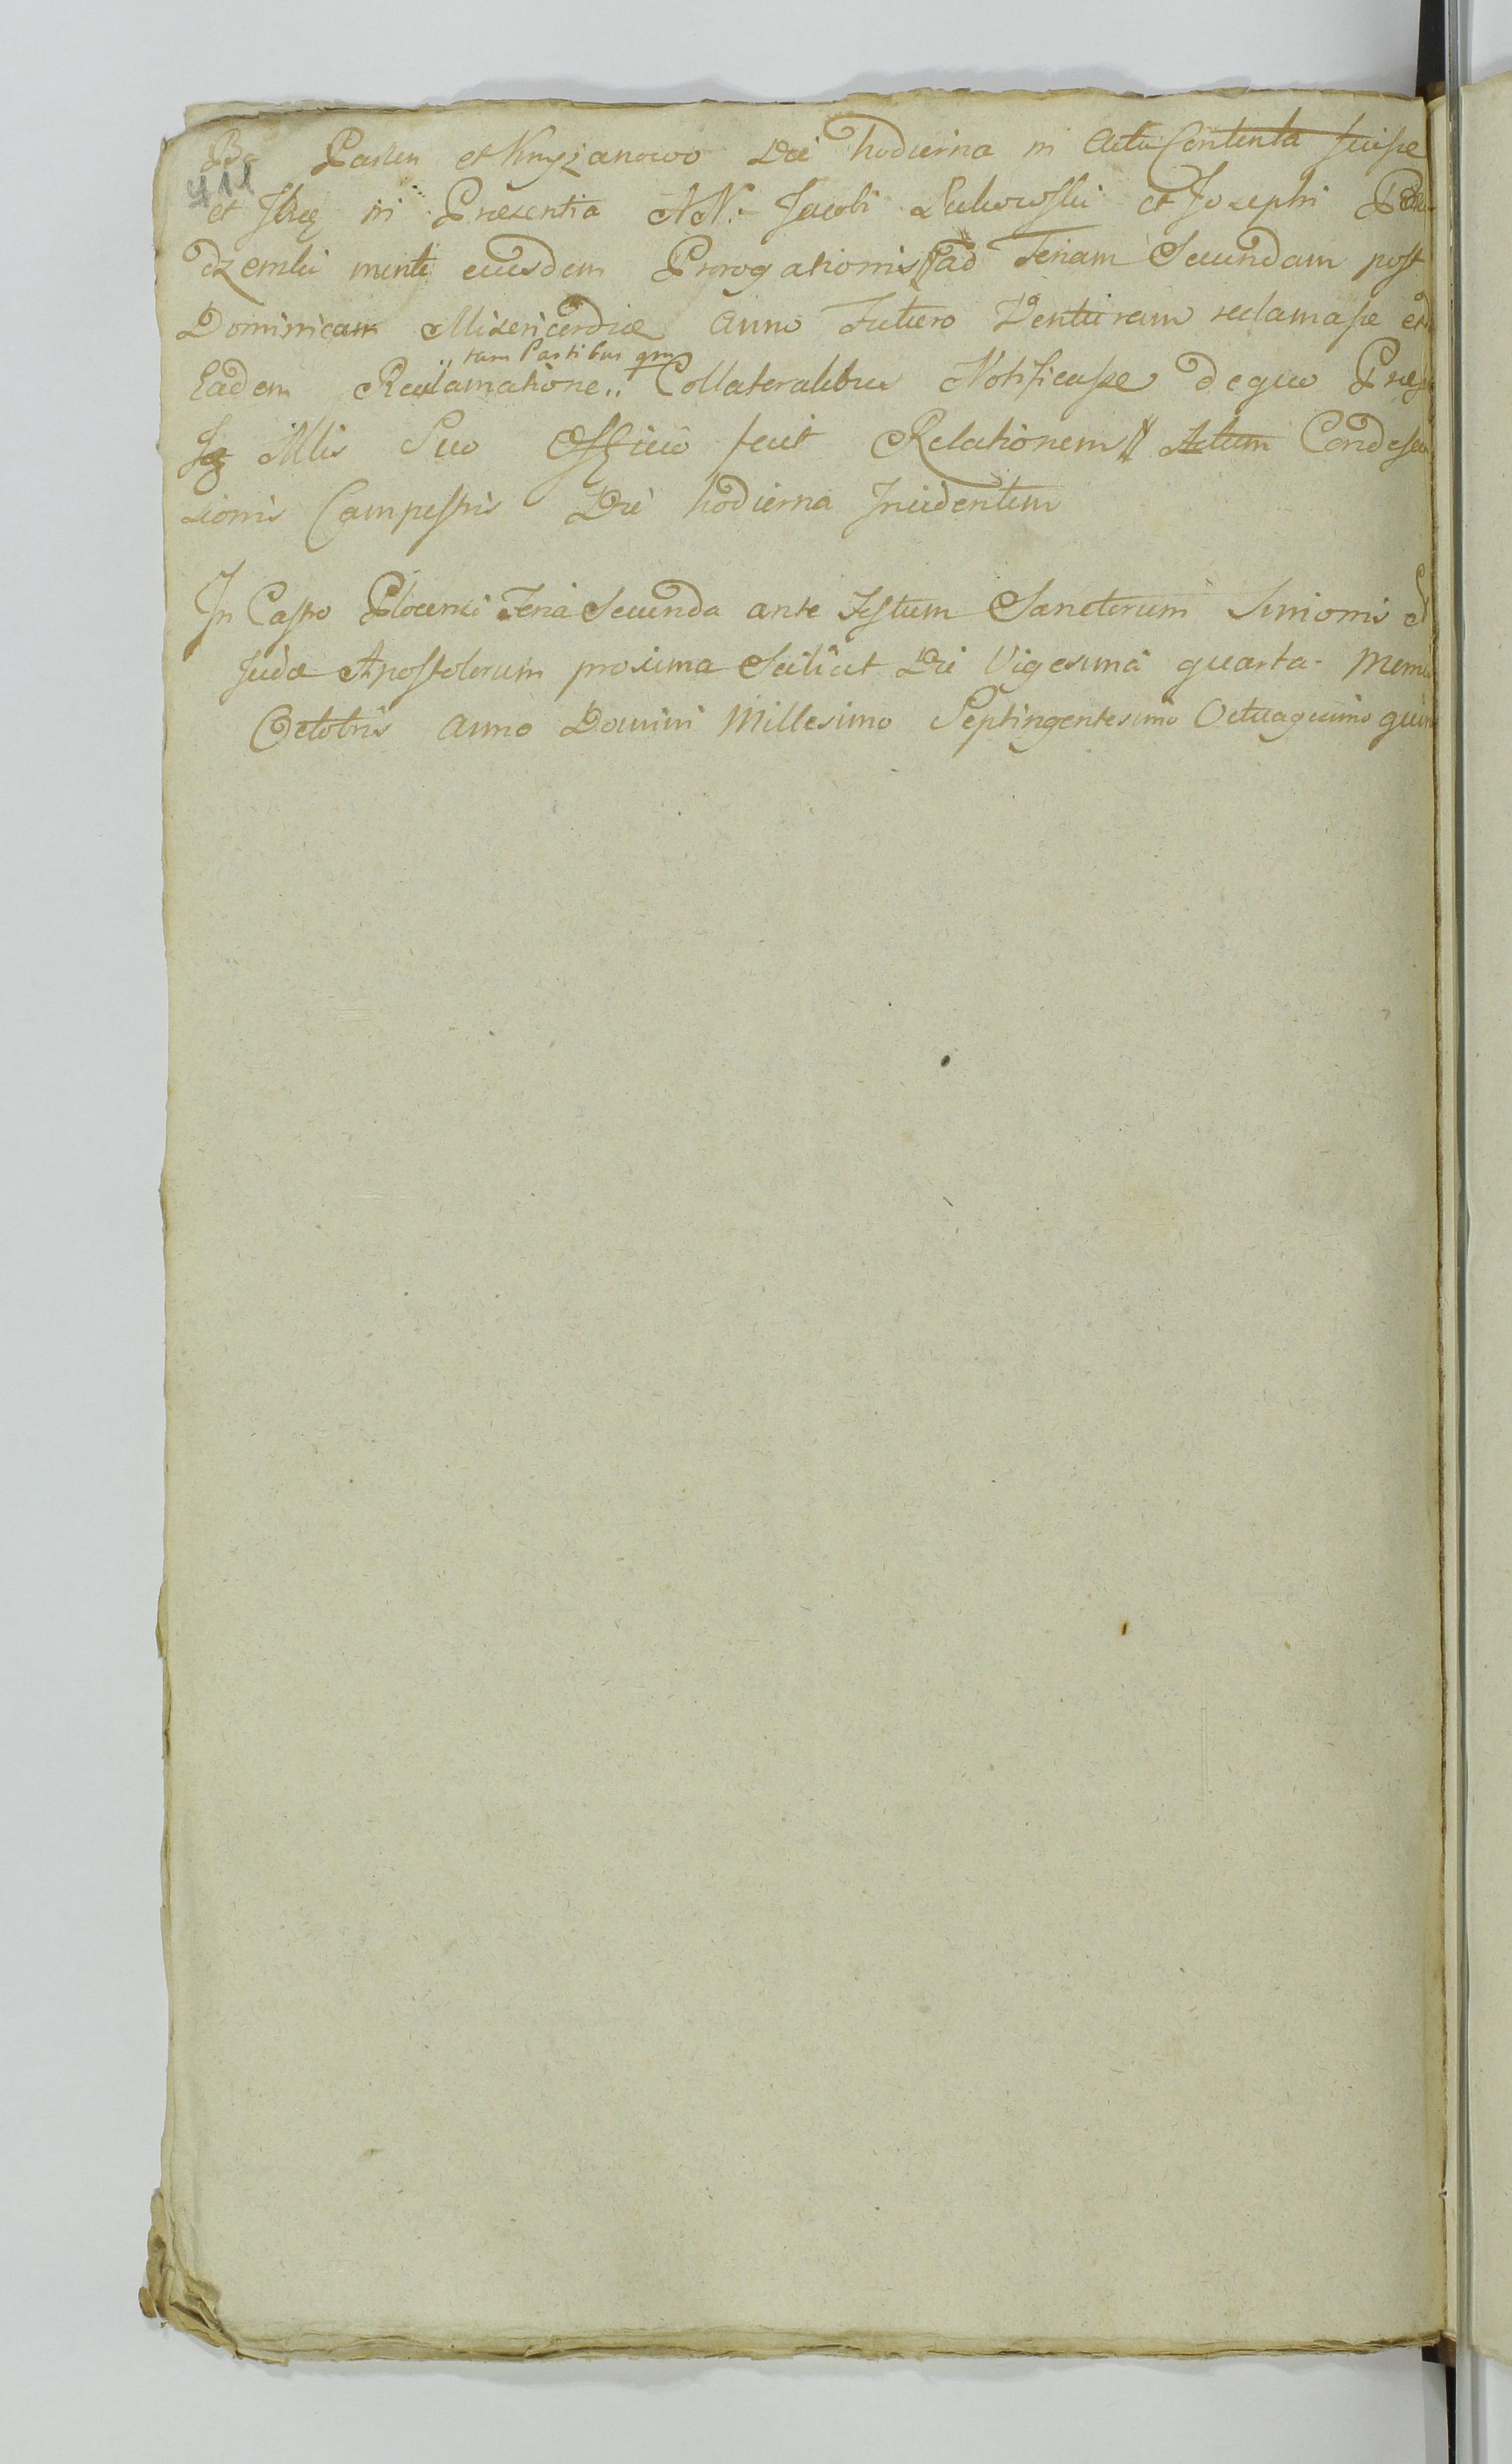 Parten et Krzyzanowo Die hodierna in Actu Contenta fuisse
411
et in Præsentia NN. Jacobi Łukowski et Josephi
dzemki eiusdem Prorogationis ad Feriam Secundam post
Dominicam Misericordiæ Anno Futuro Venturam reclamasse et
tam Partibus qm
Eadem Reclamatione Collateralibus Notificasse deque
Suo Officio fecit Relationem Actum Condescen
sionis Campestris Die hodierna Incidentem
In Castro Plocensi Feria Secunda ante Festum Sanctorum Simonis et
Judæ Apostolorum proxima Scilicet Die Vigesima quarta Mensis
Octobris Anno Domini Millesimo Septingentesimo Octuagesimo quin